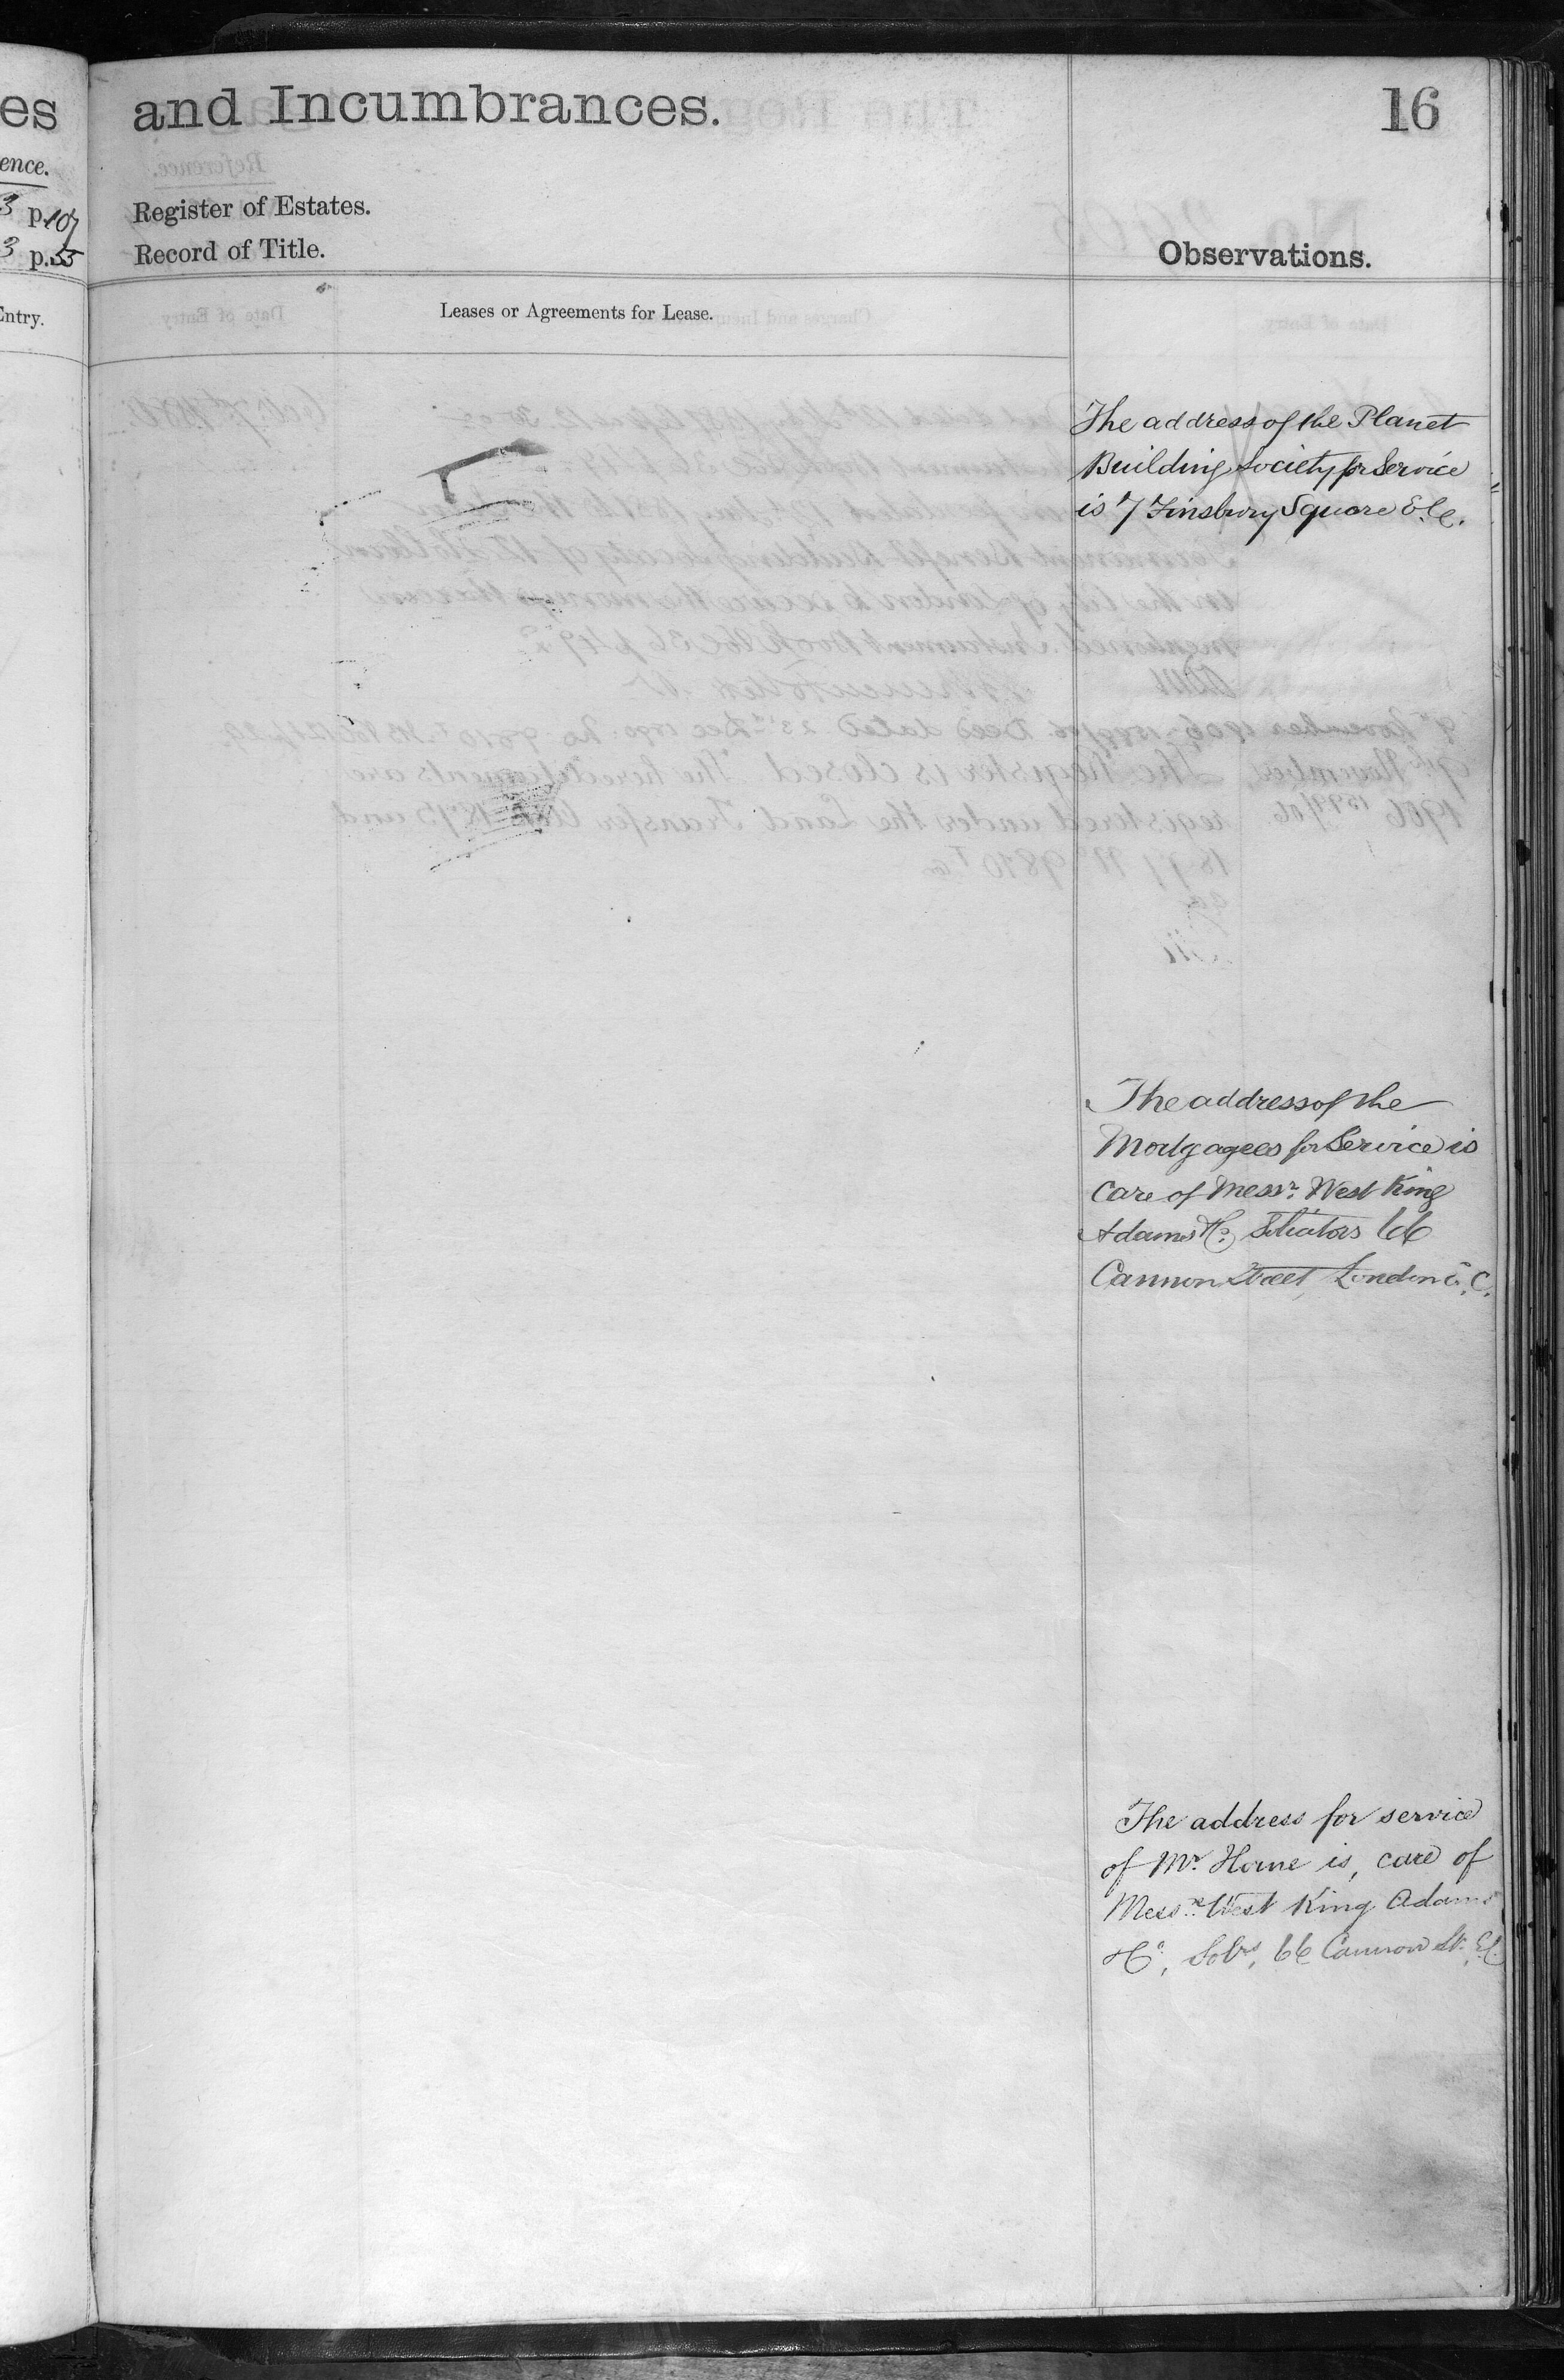 es
ence.
3 p.107
3 p.55
Entry.
and Incumbrances.
16
Register of Estates.
Record of Title.
Observations.
Leases or Agreements for Lease.
The address of the Planet
Building Society for Service
is 7 Finsbury Square E.C.
The address of the
Mortgagees for Service is
Care of Messrs. West King
Adams & Co. Solicitors 66
Cannon Street, London E.C.
The address for service
of Mr. Horne is, care of
Messrs. West King Adams
& Co, Solrs, 66 Cannon St. E.C.